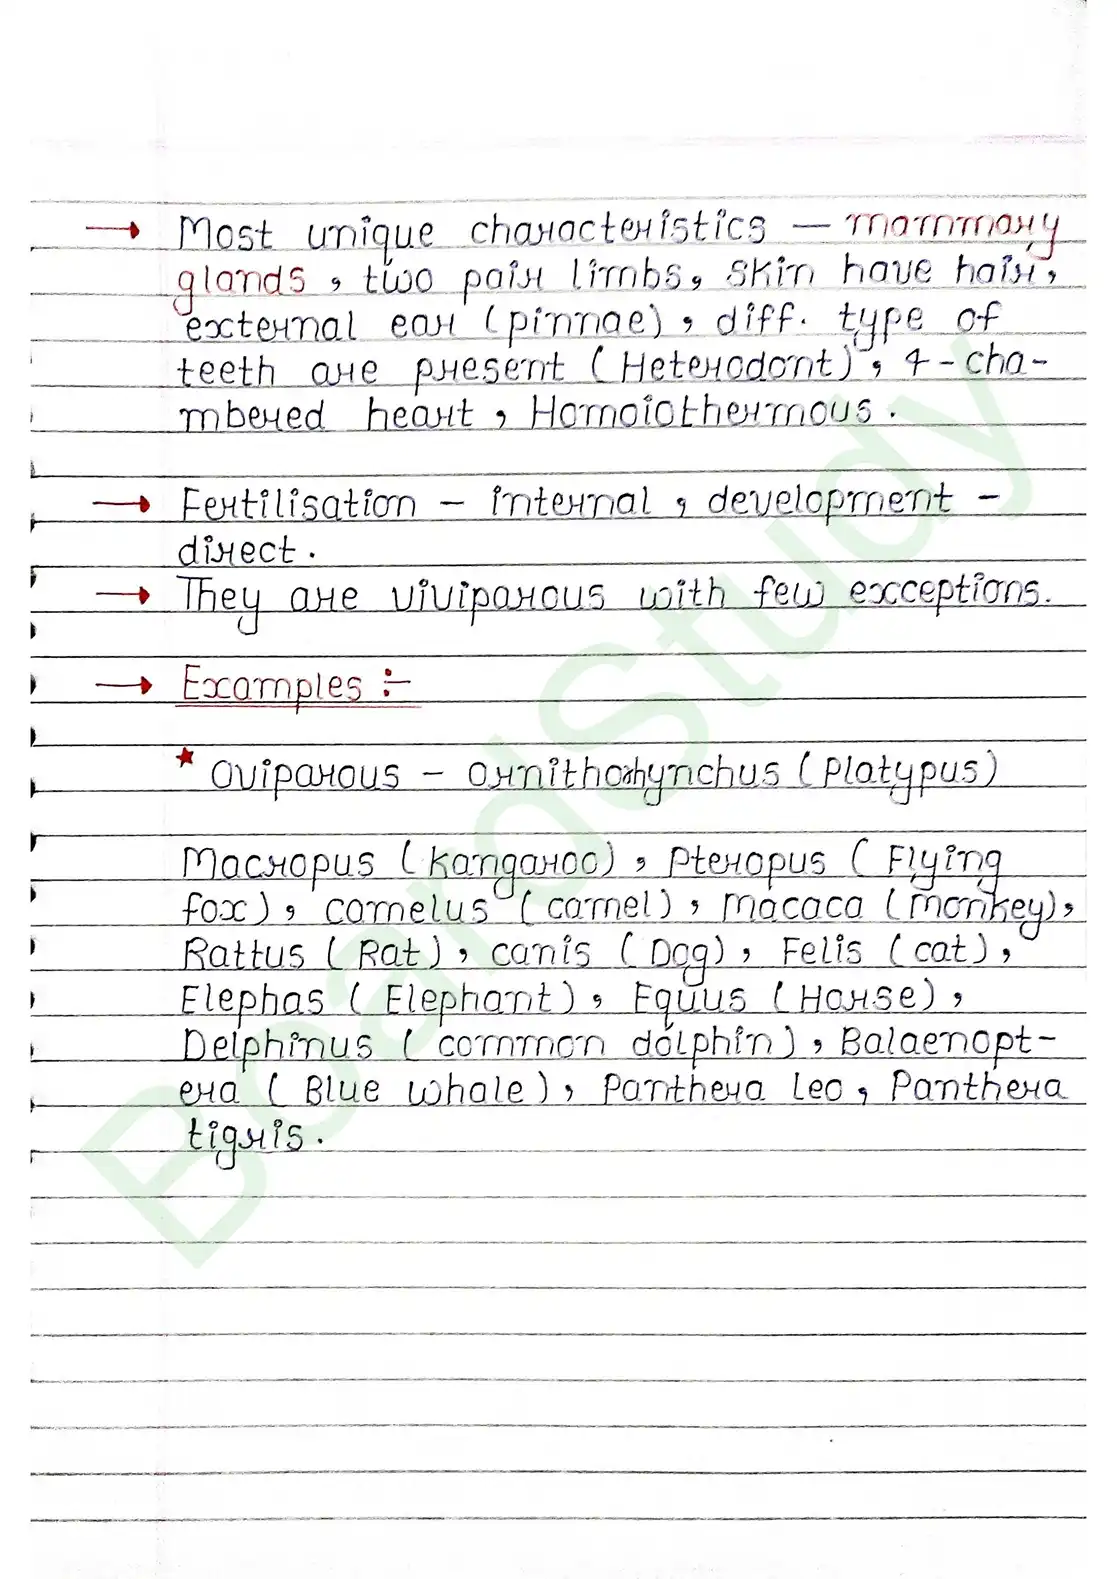 → Most unique characteristics — mammary
glands, two pair limbs, skin have hair,
external ear (pinnae), diff. type of
teeth are present (Heterodont), 4-cha-
mbered heart, Homoiothermous.
→ Fertilisation - internal, development -
direct.
→ They are viviparous with few exceptions.
→ Examples :-
★ Oviparous - Ornithorhynchus (Platypus)
Macropus (Kangaroo), Pteropus (Flying
fox), camelus (camel), Macaca (monkey),
Rattus (Rat), canis (Dog), Felis (cat),
Elephas (Elephant), Equus (Horse),
Delphinus (common dolphin), Balaenopt-
era (Blue whale), Panthera leo, Panthera
tigris.
BoardStudy